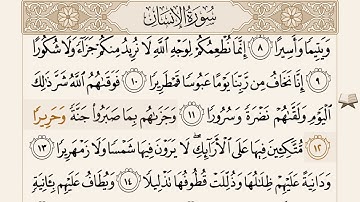 سُورَةُ الإِنسَانِ
وَيَتِيمًا وَأَسِيرًا ٨ إِنَّمَا نُطْعِمُكُمْ لِوَجْهِ اللَّهِ لَا نُرِيدُ مِنكُمْ جَزَاءً وَلَا شُكُورًا
٩ إِنَّا نَخَافُ مِن رَّبِّنَا يَوْمًا عَبُوسًا قَمْطَرِيرًا ١٠ فَوَقَىٰهُمُ اللَّهُ شَرَّ ذَٰلِكَ
الْيَوْمِ وَلَقَّىٰهُمْ نَضْرَةً وَسُرُورًا ١١ وَجَزَىٰهُم بِمَا صَبَرُوا جَنَّةً وَحَرِيرًا
١٢ مُّتَّكِـِٔينَ فِيهَا عَلَى الْأَرَائِكِ ۖ لَا يَرَوْنَ فِيهَا شَمْسًا وَلَا زَمْهَرِيرًا ١٣
وَدَانِيَةً عَلَيْهِمْ ظِلَٰلُهَا وَذُلِّلَتْ قُطُوفُهَا تَذْلِيلًا ١٤ وَيُطَافُ عَلَيْهِم بِـَٔانِيَةٍ